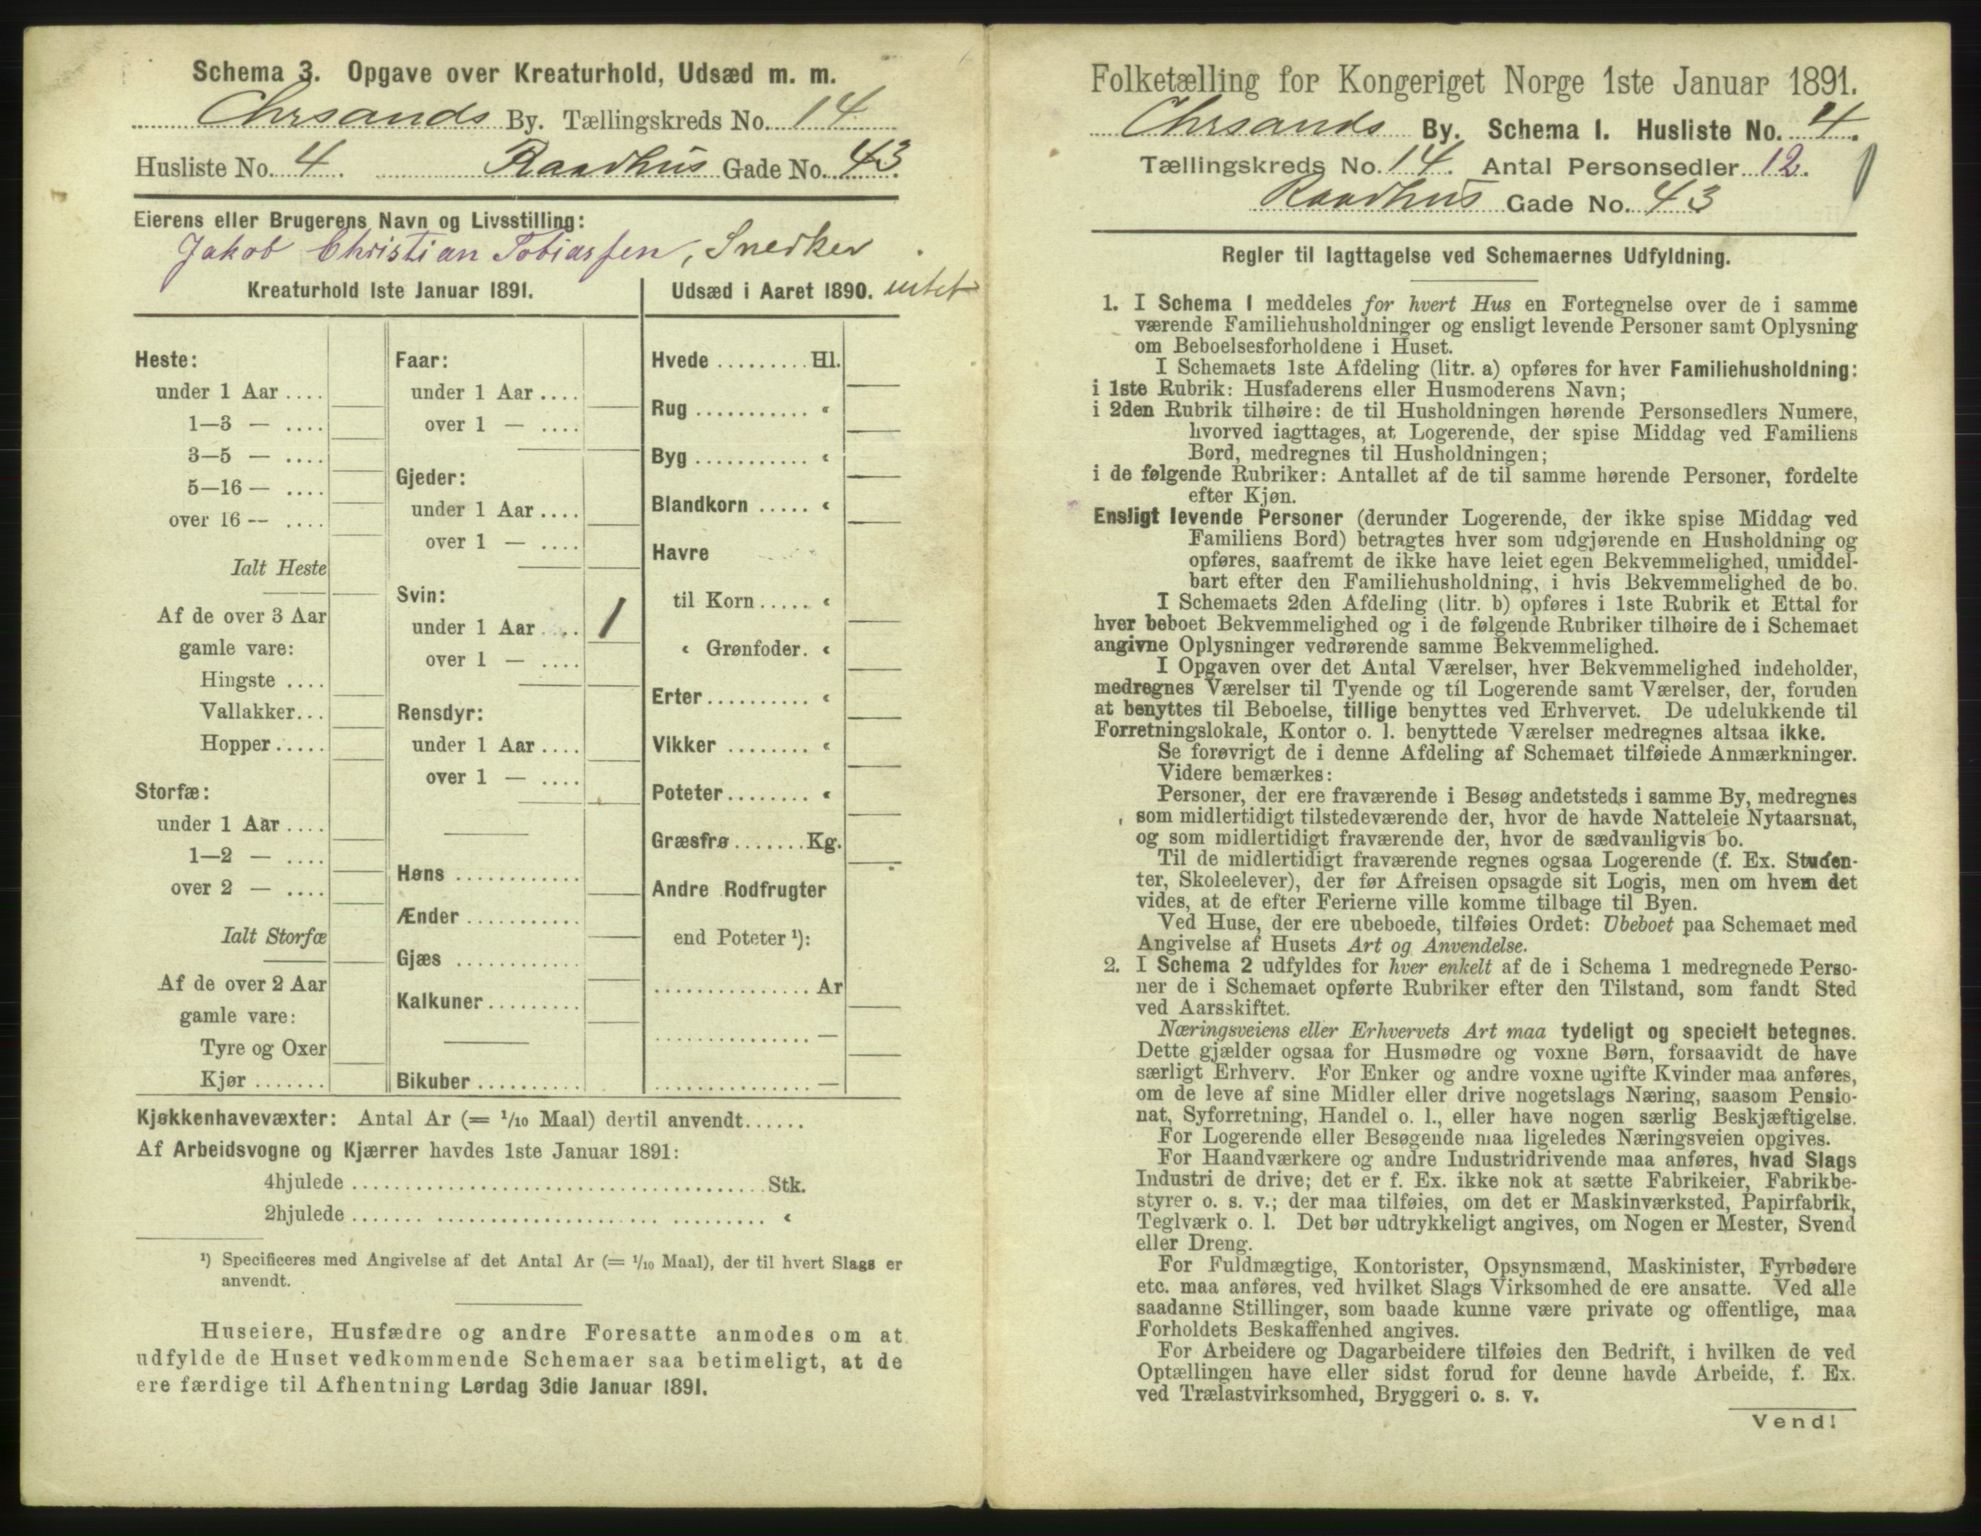 Schema 3. Opgave over Kreaturhold, Udsæd m. m.
Chrsands By. Tællingskreds No. 14
Husliste No. 4. Raadhus Gade No. 43.
Eierens eller Brugerens Navn og Livsstilling:
Jakob Christian Tobiassen, Snedker
Kreaturhold 1ste Januar 1891.
Heste:
under 1 Aar ....
1—3 — ....
3—5 — ....
5—16 — ....
over 16 — ....
Ialt Heste
Af de over 3 Aar
gamle vare:
Hingste ....
Vallakker...
Hopper.....
Storfæ:
under 1 Aar ....
1—2 — ....
over 2 — ....
Ialt Storfæ
Af de over 2 Aar
gamle vare:
Tyre og Oxer
Kjør .......
Faar:
under 1 Aar ....
over 1 — ....
Gjeder:
under 1 Aar ....
over 1 — ....
Svin:
under 1 Aar .... 1
over 1 — ....
Rensdyr:
under 1 Aar ....
over 1 — ....
Høns ............
Ænder ...........
Gjæs ............
Kalkuner.........
Bikuber ..........
Udsæd i Aaret 1890. intet
Hvede ......... Hl.
Rug ........... «
Byg ........... «
Blandkorn ..... «
Havre
til Korn..... «
« Grønfoder. «
Erter.......... «
Vikker ........ «
Poteter........ «
Græsfrø....... Kg.
Andre Rodfrugter
end Poteter ¹):
............... Ar
............... —
............... —
Kjøkkenhavevæxter: Antal Ar (= 1/10 Maal) dertil anvendt......
Af Arbeidsvogne og Kjærrer havdes 1ste Januar 1891:
4hjulede ........................................ Stk.
2hjulede ........................................ «
¹) Specificeres med Angivelse af det Antal Ar (= 1/10 Maal), der til hvert Slags er
anvendt.
Huseiere, Husfædre og andre Foresatte anmodes om at
udfylde de Huset vedkommende Schemaer saa betimeligt, at de
ere færdige til Afhentning Lørdag 3die Januar 1891.
Folketælling for Kongeriget Norge 1ste Januar 1891.
Chrsands By. Schema 1. Husliste No. 4.
Tællingskreds No. 14. Antal Personsedler 12.
Raadhus Gade No. 43
Regler til Iagttagelse ved Schemaernes Udfyldning.
1. I Schema 1 meddeles for hvert Hus en Fortegnelse over de i samme
værende Familiehusholdninger og ensligt levende Personer samt Oplysning
om Beboelsesforholdene i Huset.
I Schemaets 1ste Afdeling (litr. a) opføres for hver Familiehusholdning:
i 1ste Rubrik: Husfaderens eller Husmoderens Navn;
i 2den Rubrik tilhøire: de til Husholdningen hørende Personsedlers Numere,
hvorved iagttages, at Logerende, der spise Middag ved Familiens
Bord, medregnes til Husholdningen;
i de følgende Rubriker: Antallet af de til samme hørende Personer, fordelte
efter Kjøn.
Ensligt levende Personer (derunder Logerende, der ikke spise Middag ved
Familiens Bord) betragtes hver som udgjørende en Husholdning og
opføres, saafremt de ikke have leiet egen Bekvemmelighed, umiddel-
bart efter den Familiehusholdning, i hvis Bekvemmelighed de bo.
I Schemaets 2den Afdeling (litr. b) opføres i 1ste Rubrik et Ettal for
hver beboet Bekvemmelighed og i de følgende Rubriker tilhøire de i Schemaet
angivne Oplysninger vedrørende samme Bekvemmelighed.
I Opgaven over det Antal Værelser, hver Bekvemmelighed indeholder,
medregnes Værelser til Tyende og til Logerende samt Værelser, der, foruden
at benyttes til Beboelse, tillige benyttes ved Erhvervet. De udelukkende til
Forretningslokale, Kontor o. l. benyttede Værelser medregnes altsaa ikke.
Se forøvrigt de i denne Afdeling af Schemaet tilføiede Anmærkninger.
Videre bemærkes:
Personer, der ere fraværende i Besøg andetsteds i samme By, medregnes
som midlertidigt tilstedeværende der, hvor de havde Natteleie Nytaarsnat,
og som midlertidigt fraværende der, hvor de sædvanligvis bo.
Til de midlertidigt fraværende regnes ogsaa Logerende (f. Ex. Studen-
ter, Skoleelever), der før Afreisen opsagde sit Logis, men om hvem det
vides, at de efter Ferierne ville komme tilbage til Byen.
Ved Huse, der ere ubeboede, tilføies Ordet: Ubeboet paa Schemaet med
Angivelse af Husets Art og Anvendelse.
2. I Schema 2 udfyldes for hver enkelt af de i Schema 1 medregnede Perso-
ner de i Schemaet opførte Rubriker efter den Tilstand, som fandt Sted
ved Aarsskiftet.
Næringsveiens eller Erhvervets Art maa tydeligt og specielt betegnes.
Dette gjælder ogsaa for Husmødre og voxne Børn, forsaavidt de have
særligt Erhverv. For Enker og andre voxne ugifte Kvinder maa anføres,
om de leve af sine Midler eller drive nogetslags Næring, saasom Pensio-
nat, Syforretning, Handel o. l., eller have nogen særlig Beskjæftigelse.
For Logerende eller Besøgende maa ligeledes Næringsveien opgives.
For Haandværkere og andre Industridrivende maa anføres, hvad Slags
Industri de drive; det er f. Ex. ikke nok at sætte Fabrikeier, Fabrikbe-
styrer o. s. v.; der maa tilføies, om det er Maskinværksted, Papirfabrik,
Teglværk o. l. Det bør udtrykkeligt angives, om Nogen er Mester, Svend
eller Dreng.
For Fuldmægtige, Kontorister, Opsynsmænd, Maskinister, Fyrbødere
etc. maa anføres, ved hvilket Slags Virksomhed de ere ansatte. Ved alle
saadanne Stillinger, som baade kunne være private og offentlige, maa
Forholdets Beskaffenhed angives.
For Arbeidere og Dagarbeidere tilføies den Bedrift, i hvilken de ved
Optællingen have eller sidst forud for denne havde Arbeide, f. Ex.
ved Trælastvirksomhed, Bryggeri o. s. v.
Vend!